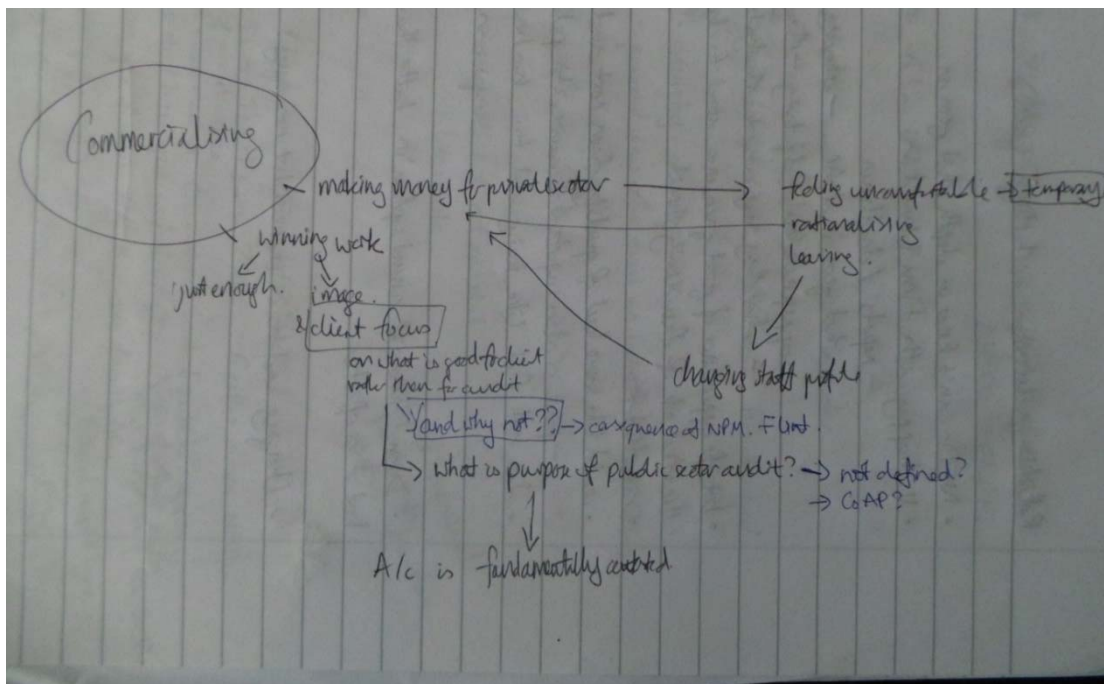 Commercialising
making money for private sector → feeling uncomfortable → temporary
rationalising
leaving.
winning work
just enough.
image.
& client focus
on what is good for client
rather than for audit
changing staff profile
and why not?? → consequence of NPM. Flint.
→ what is purpose of public sector audit? → not defined?
→ CoAP?
A/c is fundamentally